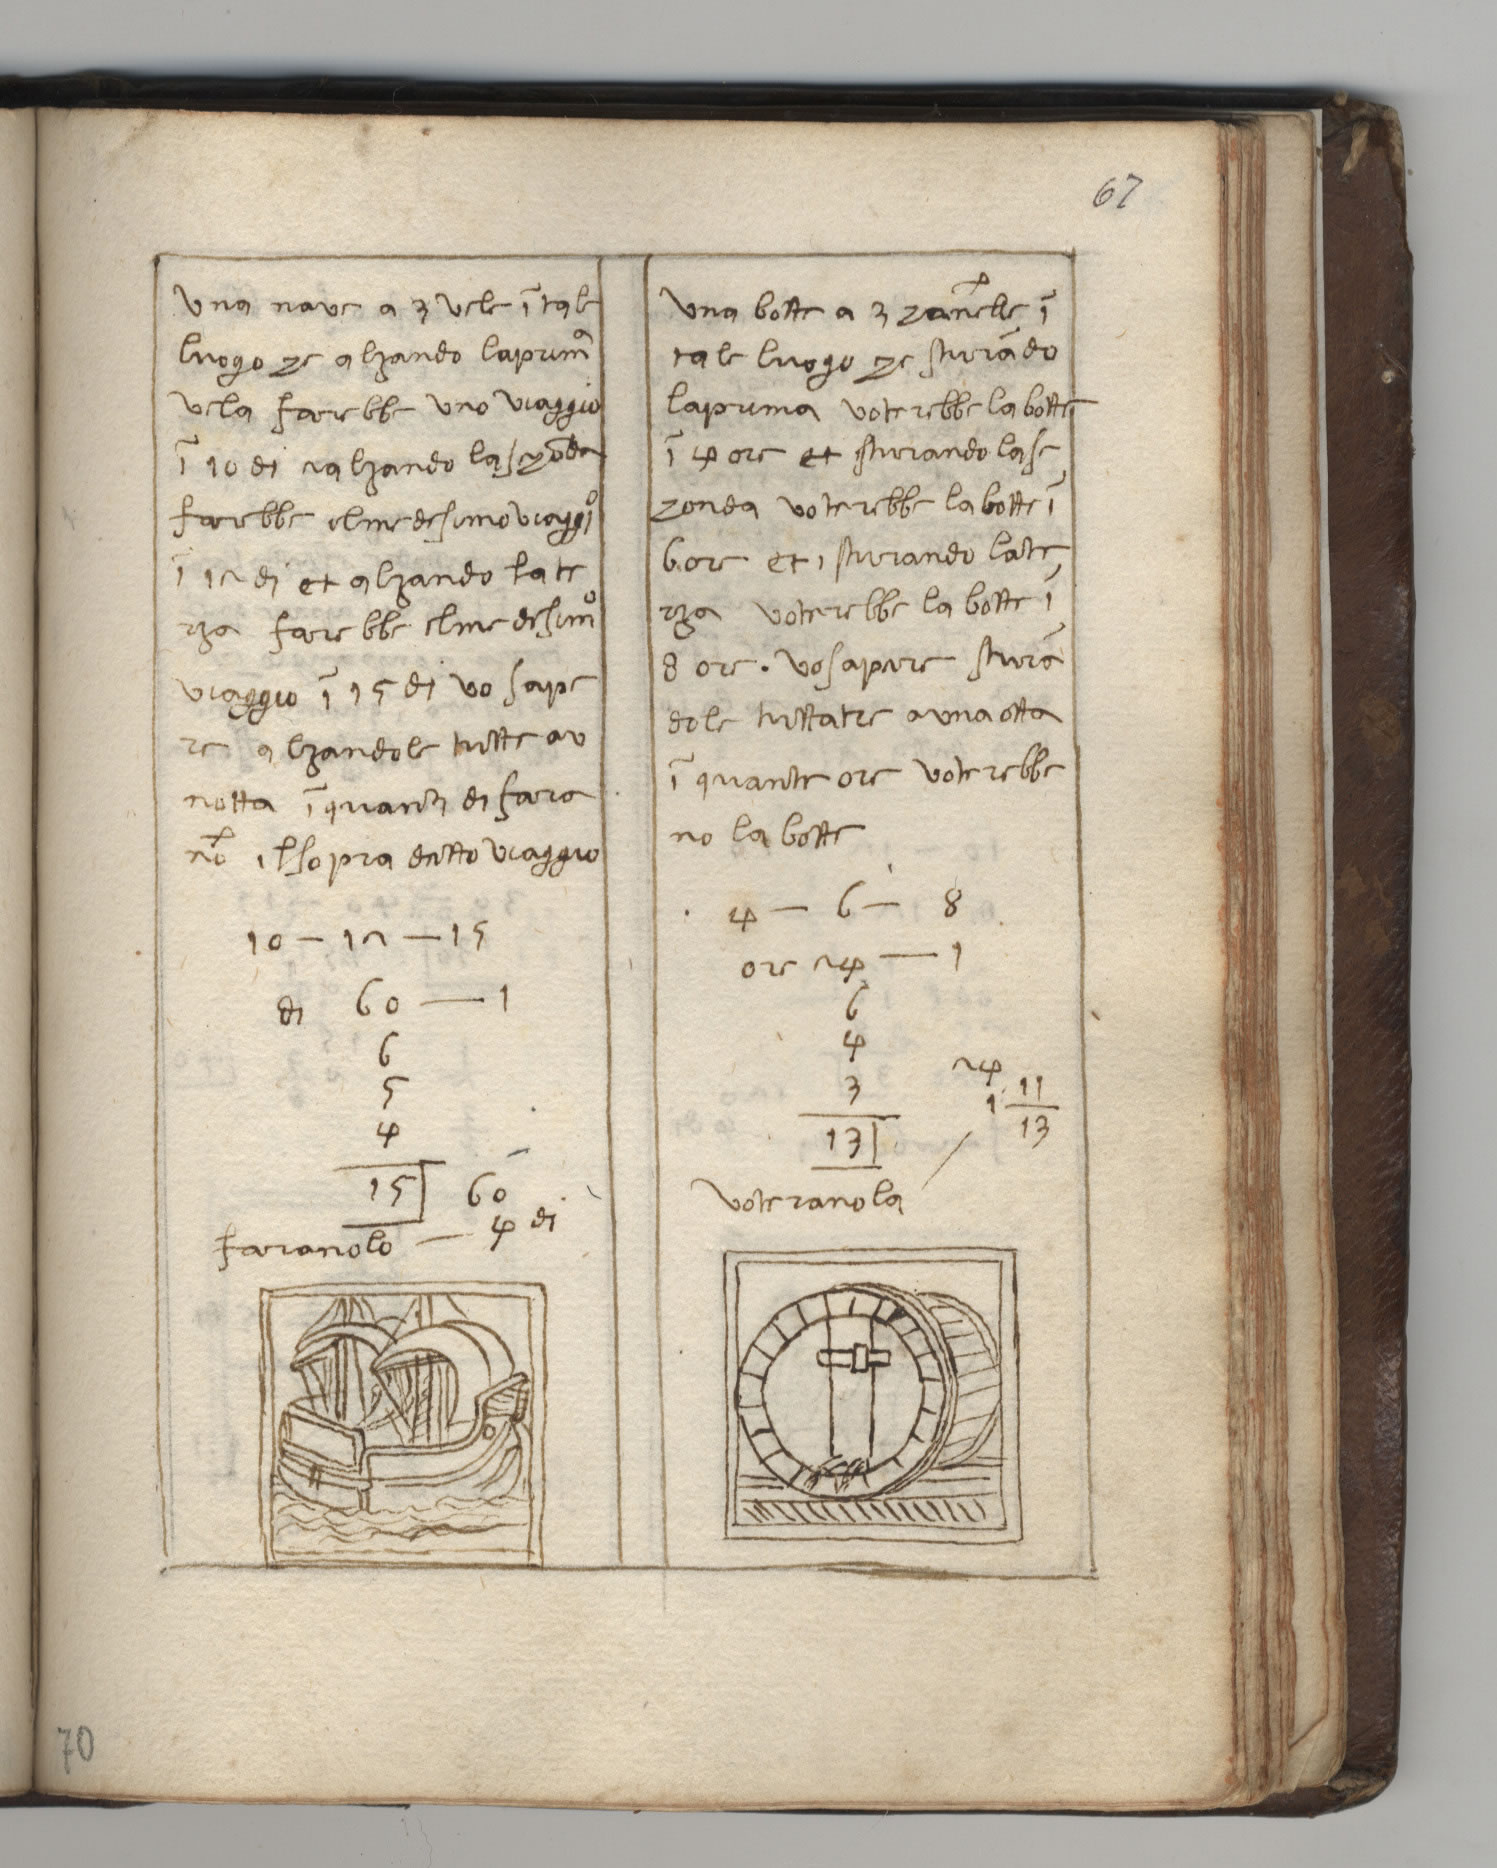 67
una nave a 3 vele ī tale
luogo ҫe alzando laprimª
vela farebbe uno viaggio
ī 10 di ealzando laseҫōda
farebbe elmedesimoviaggiº
ī 12 di et alzando late
rza farebbe elmedesimº
viaggio ī 15 di vo sape
re alzandole tutte au
notta ī quanti di fara
nō ilsopra detto viaggio
10 — 12 — 15
di 60 — 1
6
5
4
15 60
faranolo — 4 di
una botte a 3 zānelle ī
tale luogo ҫe sturādo
laprima voterebbe labotte
ī 4 ore et sturando lase
ҫonda voterebbe labotte ī
6 ore et isturando late
rza voterebbe labotte ī
8 ore . vosapere sturā
dole tuttatre aunaotta
ī quante ore voterebbe
no labotte
4 — 6 — 8
ore 24 — 1
6
4
3
13 24
1 11/13
voteranola
70